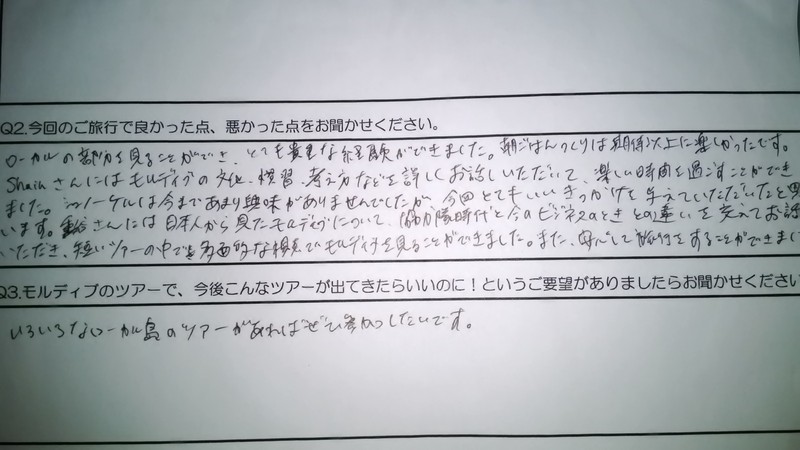 Q2.今回のご旅行で良かった点、悪かった点をお聞かせください。
ローカルの部分を見ることができ、とても貴重な経験ができました。朝ごはんつくりは期待以上に楽しかったです。
Shainさんにはモルディブの文化、慣習、考え方などを詳しくお話しいただいて、楽しい時間を過ごすことができ
ました。シュノーケルは今まであまり興味がありませんでしたが、今回とてもいいきっかけを与えていただいたと思
います。さんには日本人から見たモルディブについて、協力隊時代と今のビジネスのときとの違いを交えてお話
いただき、短いツアーの中でも多面的な視点でモルディブを見ることができました。また、安心して旅行をすることができまし
Q3.モルディブのツアーで、今後こんなツアーが出てきたらいいのに！というご要望がありましたらお聞かせください
いろいろなローカル島のツアーがあればぜひ参加したいです。